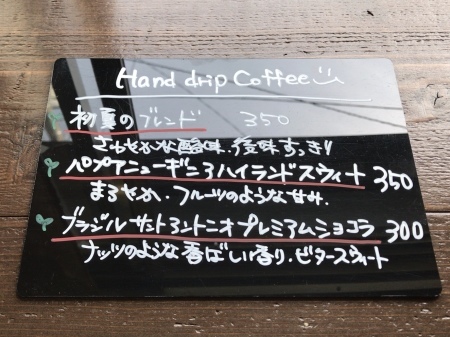 Hand drip Coffee
初夏のブレンド 350
さわやかな酸味、後味すっきり
パプアニューギニアハイランドスウィート 350
まろやか、フルーツのような甘み、
ブラジルサントアントニオプレミアムショコラ 300
ナッツのような香ばしい香り、ビタースウィート